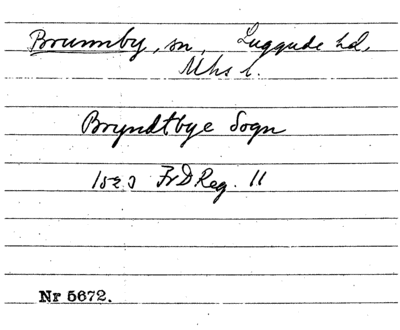 Brunnby, sn, Luggude hd,
Mhs l.
Bryndtbye Sogn
1523 FrDReg. 11
Nr 5672.